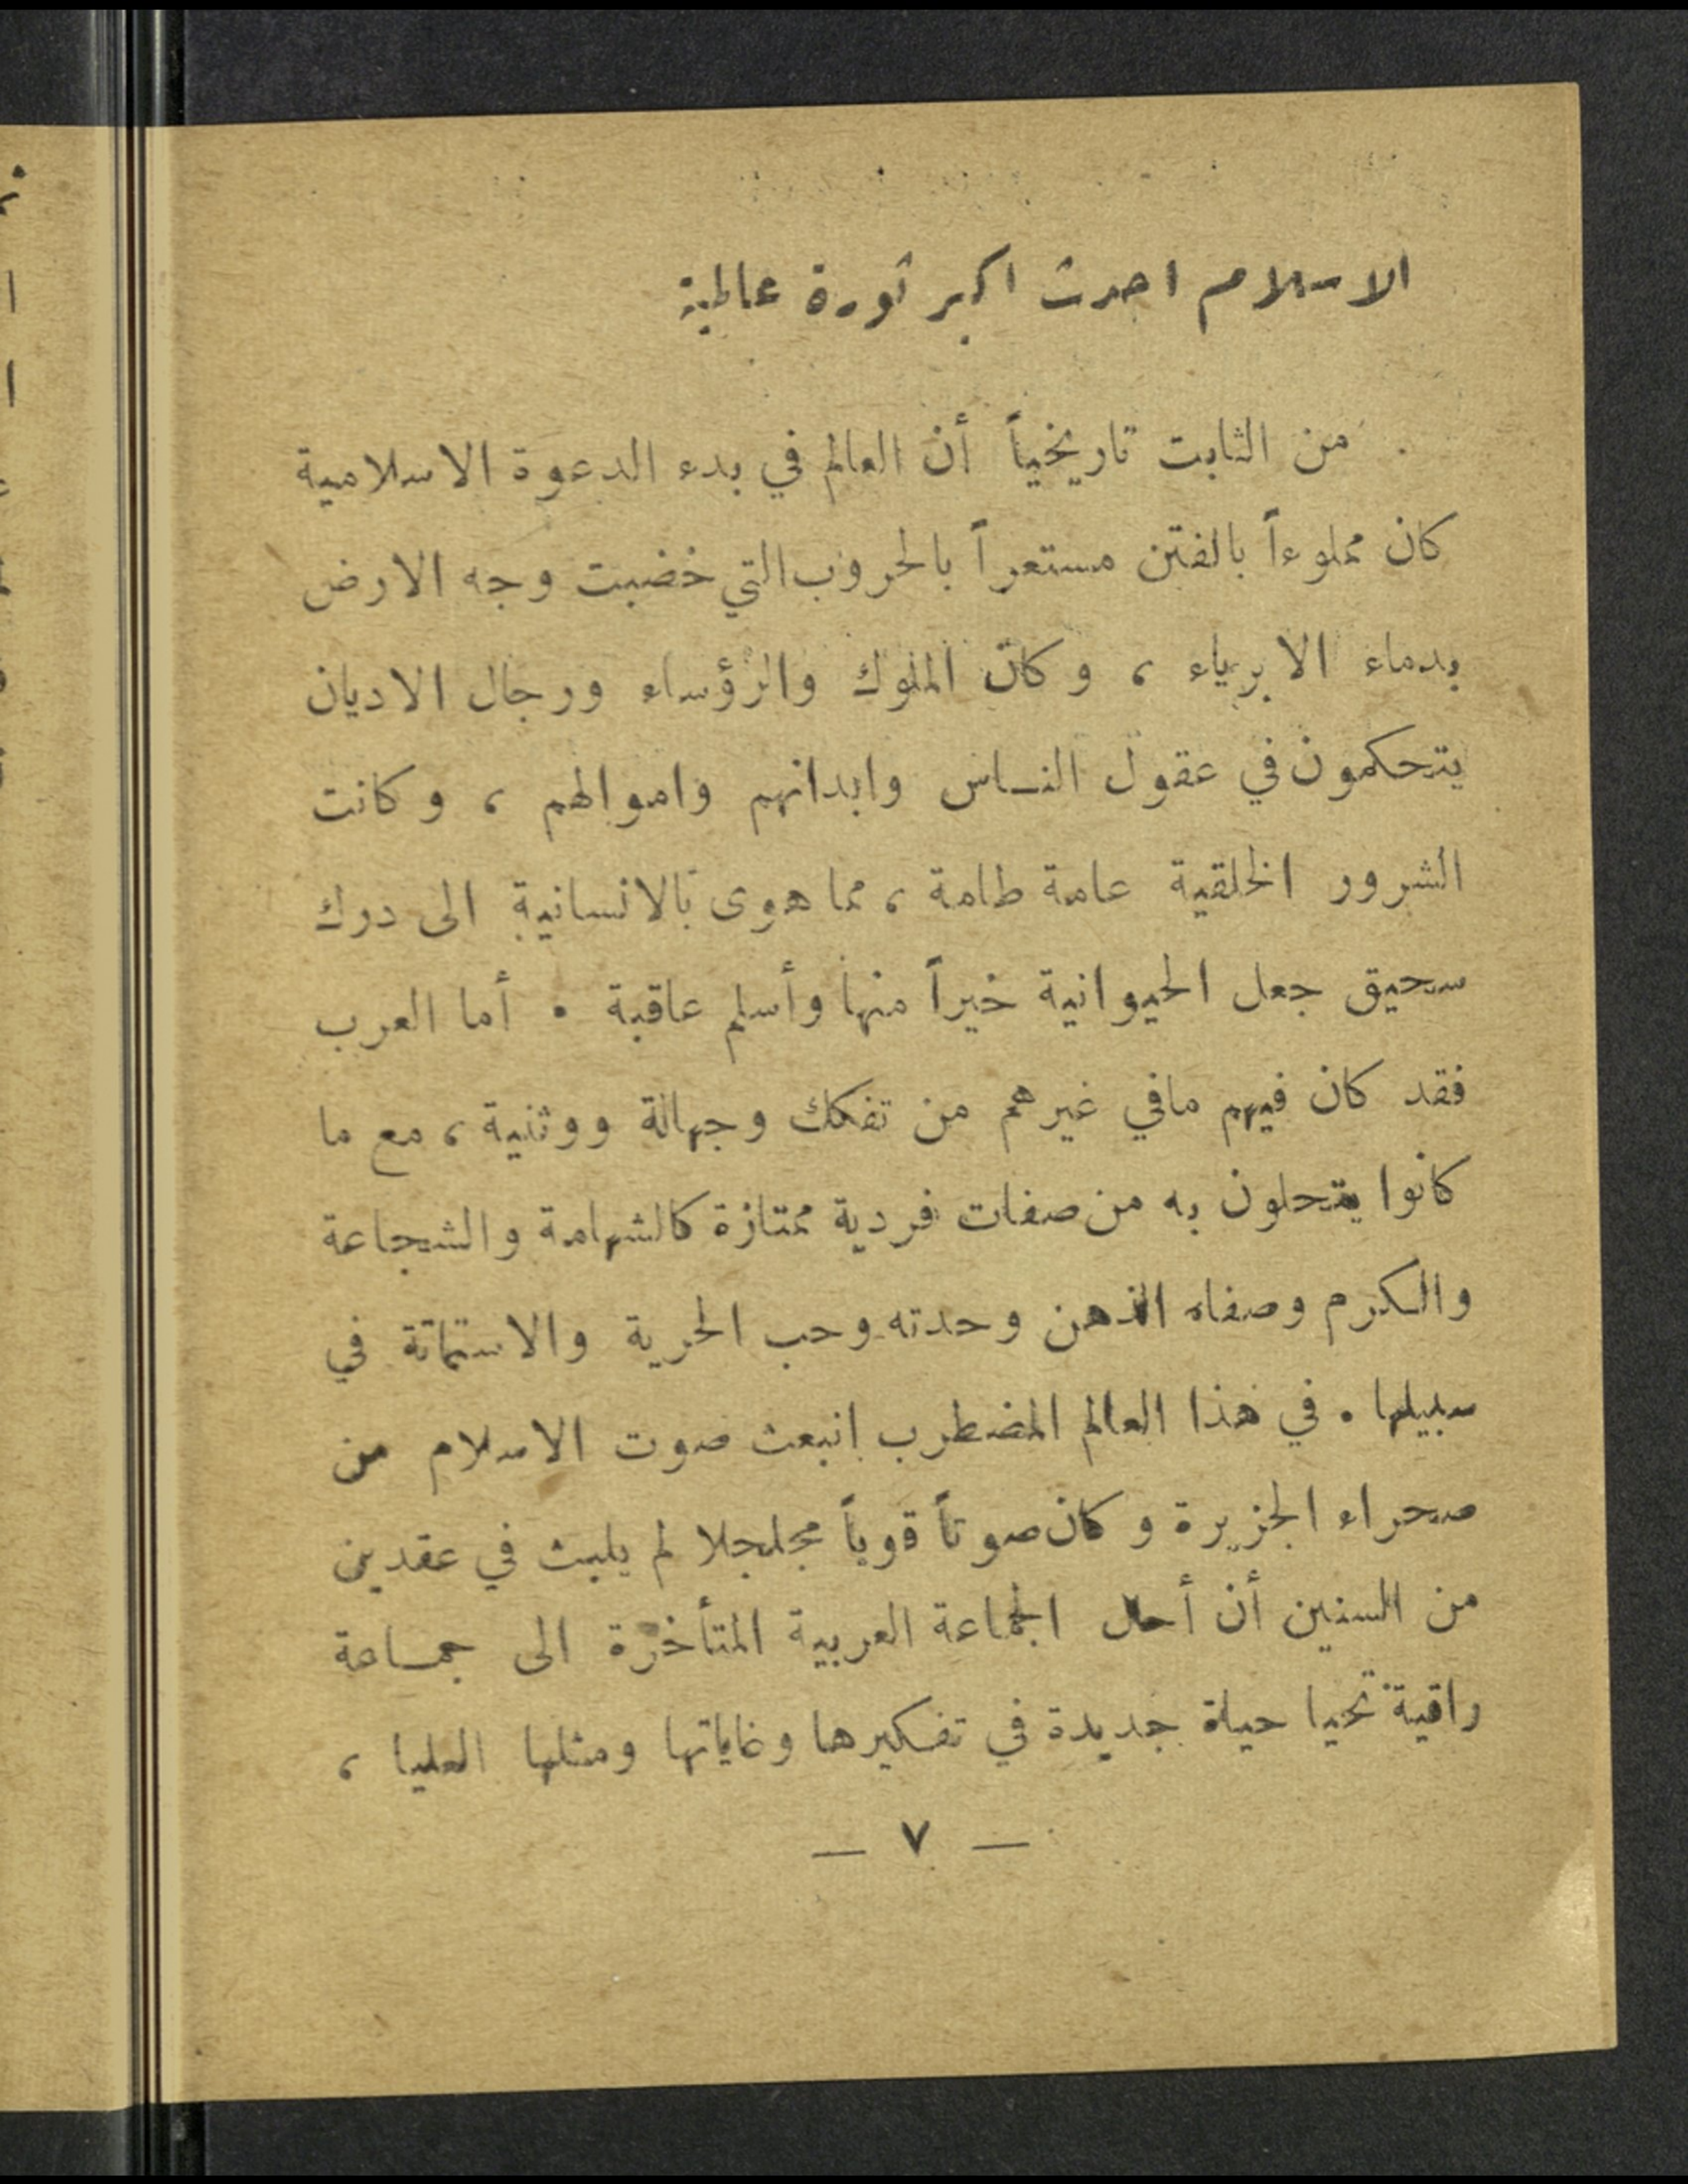 الاسلام احدث اكبر ثورة عالمية
من الثابت تاريخياً أن العالم في بدء الدعوة الاسلامية
كان مملوءاً بالفتن مستعراً بالحروب التي خضبت وجه الارض
بدماء الابرياء ، وكان الملوك والرؤساء ورجال الاديان
يتحكمون في عقول النـاس وابدانهم واموالهم ، وكانت
الشرور الخلقية عامة طامة ، مما هوى بالانسانية الى درك
سحيق جعل الحيوانية خيراً منها وأسلم عاقبة . أما العرب
فقد كان فيهم مافي غيرهم من تفكك وجهالة ووثنية ، مع ما
كانوا يتحلون به من صفات فردية ممتازة كالشهامة والشجاعة
والكرم وصفاء الذهن وحدته وحب الحرية والاستماتة في
سبيلها . في هذا العالم المضطرب انبعث صوت الاسلام من
صحراء الجزيرة وكان صوتاً قوياً مجلجلا لم يلبث في عقدين
من السنين أن أحال الجماعة العربية المتأخرة الى جمـاعة
راقية تحيا حياة جديدة في تفكيرها وغاياتها ومثلها العليا ،
— ٧ —